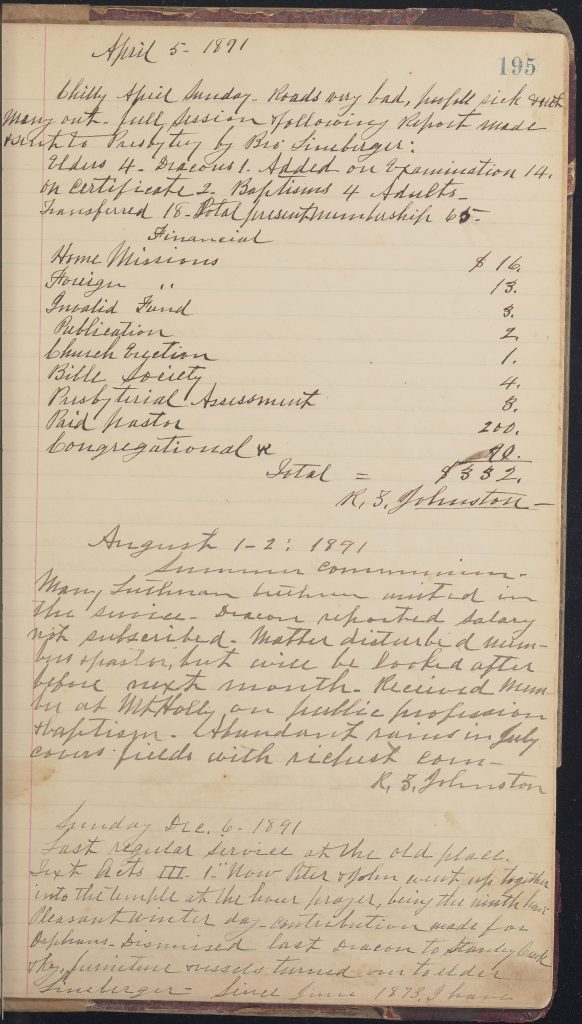 195
April 5 - 1891
Chilly April Sunday - Roads very bad, people sick & not
Many out - full session & following Report made
& sent to Presbytery by Bro Lineberger:
Elders 4 - Deacons 1. Added on Examination 14.
on certificate 2 - Baptisms 4 Adults -
Transferred 18 - Total present membership 65 -
Financial
Home Missions $ 16.
Foreign " 13.
Invalid Fund 3.
Publication 2.
Church Erection 1.
Bible Society 4.
Presbyterial Assessment 8.
Paid pastor 200.
Congregational &c 90.
Total = $332.
R. Z. Johnston -
August 1-2: 1891
Summer communion -
Many Lutheran brethren united in
the service - Deacon reported salary
not subscribed - Matter disturbed mem-
bers & pastor, but will be looked after
before next month - Received Mem-
ber at Mt Holly on public profession
& baptism - Abundant rains in July
covers fields with richest corn -
R. Z. Johnston
Sunday Dec. 6 - 1891
Last regular service at the old place.
Text Acts III. 1: "Now Peter & John went up together
into the temple at the hour prayer, being the ninth hour
Pleasant winter day - contribution made for
Orphans - Dismissed last Deacon to Stanley Creek
& key, furniture & vessels turned over to elder
Lineberger - Since June 1873, I have